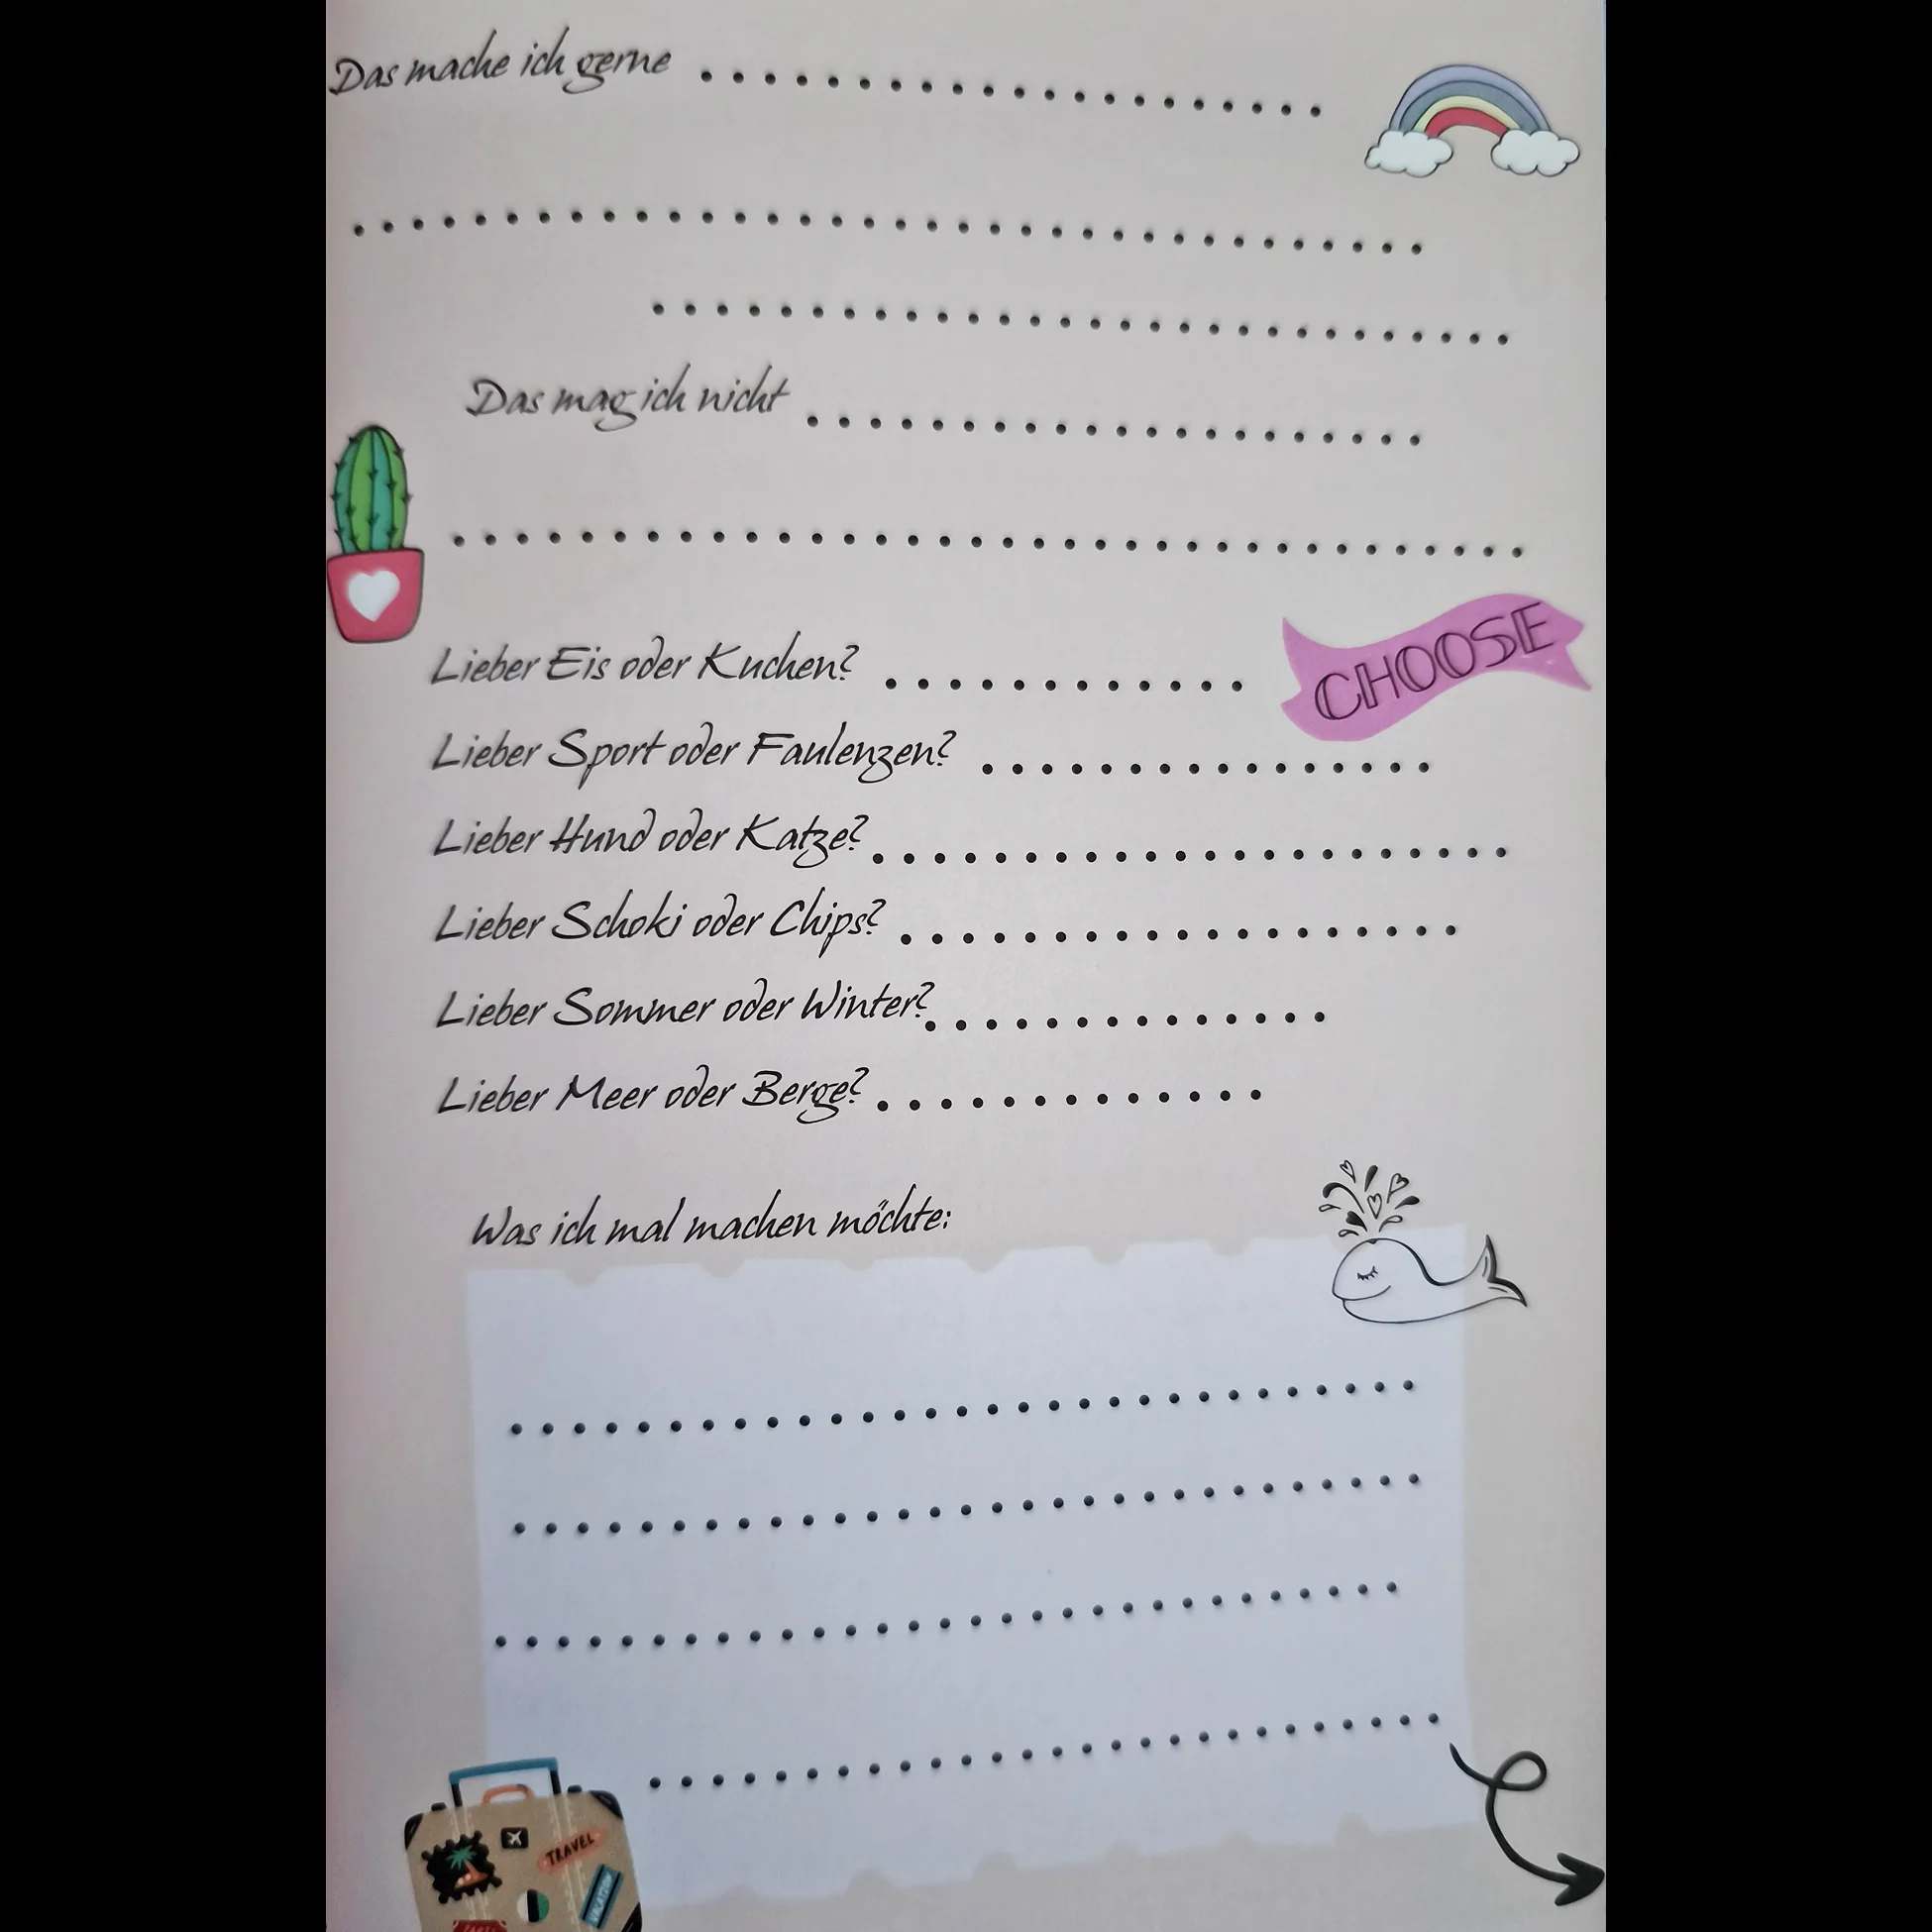 Das mache ich gerne
Das mag ich nicht
CHOOSE
Lieber Eis oder Kuchen?
Lieber Sport oder Faulenzen?
Lieber Hund oder Katze?
Lieber Schoki oder Chips?
Lieber Sommer oder Winter?
Lieber Meer oder Berge?
Was ich mal machen möchte:
TRAVEL
VACATION